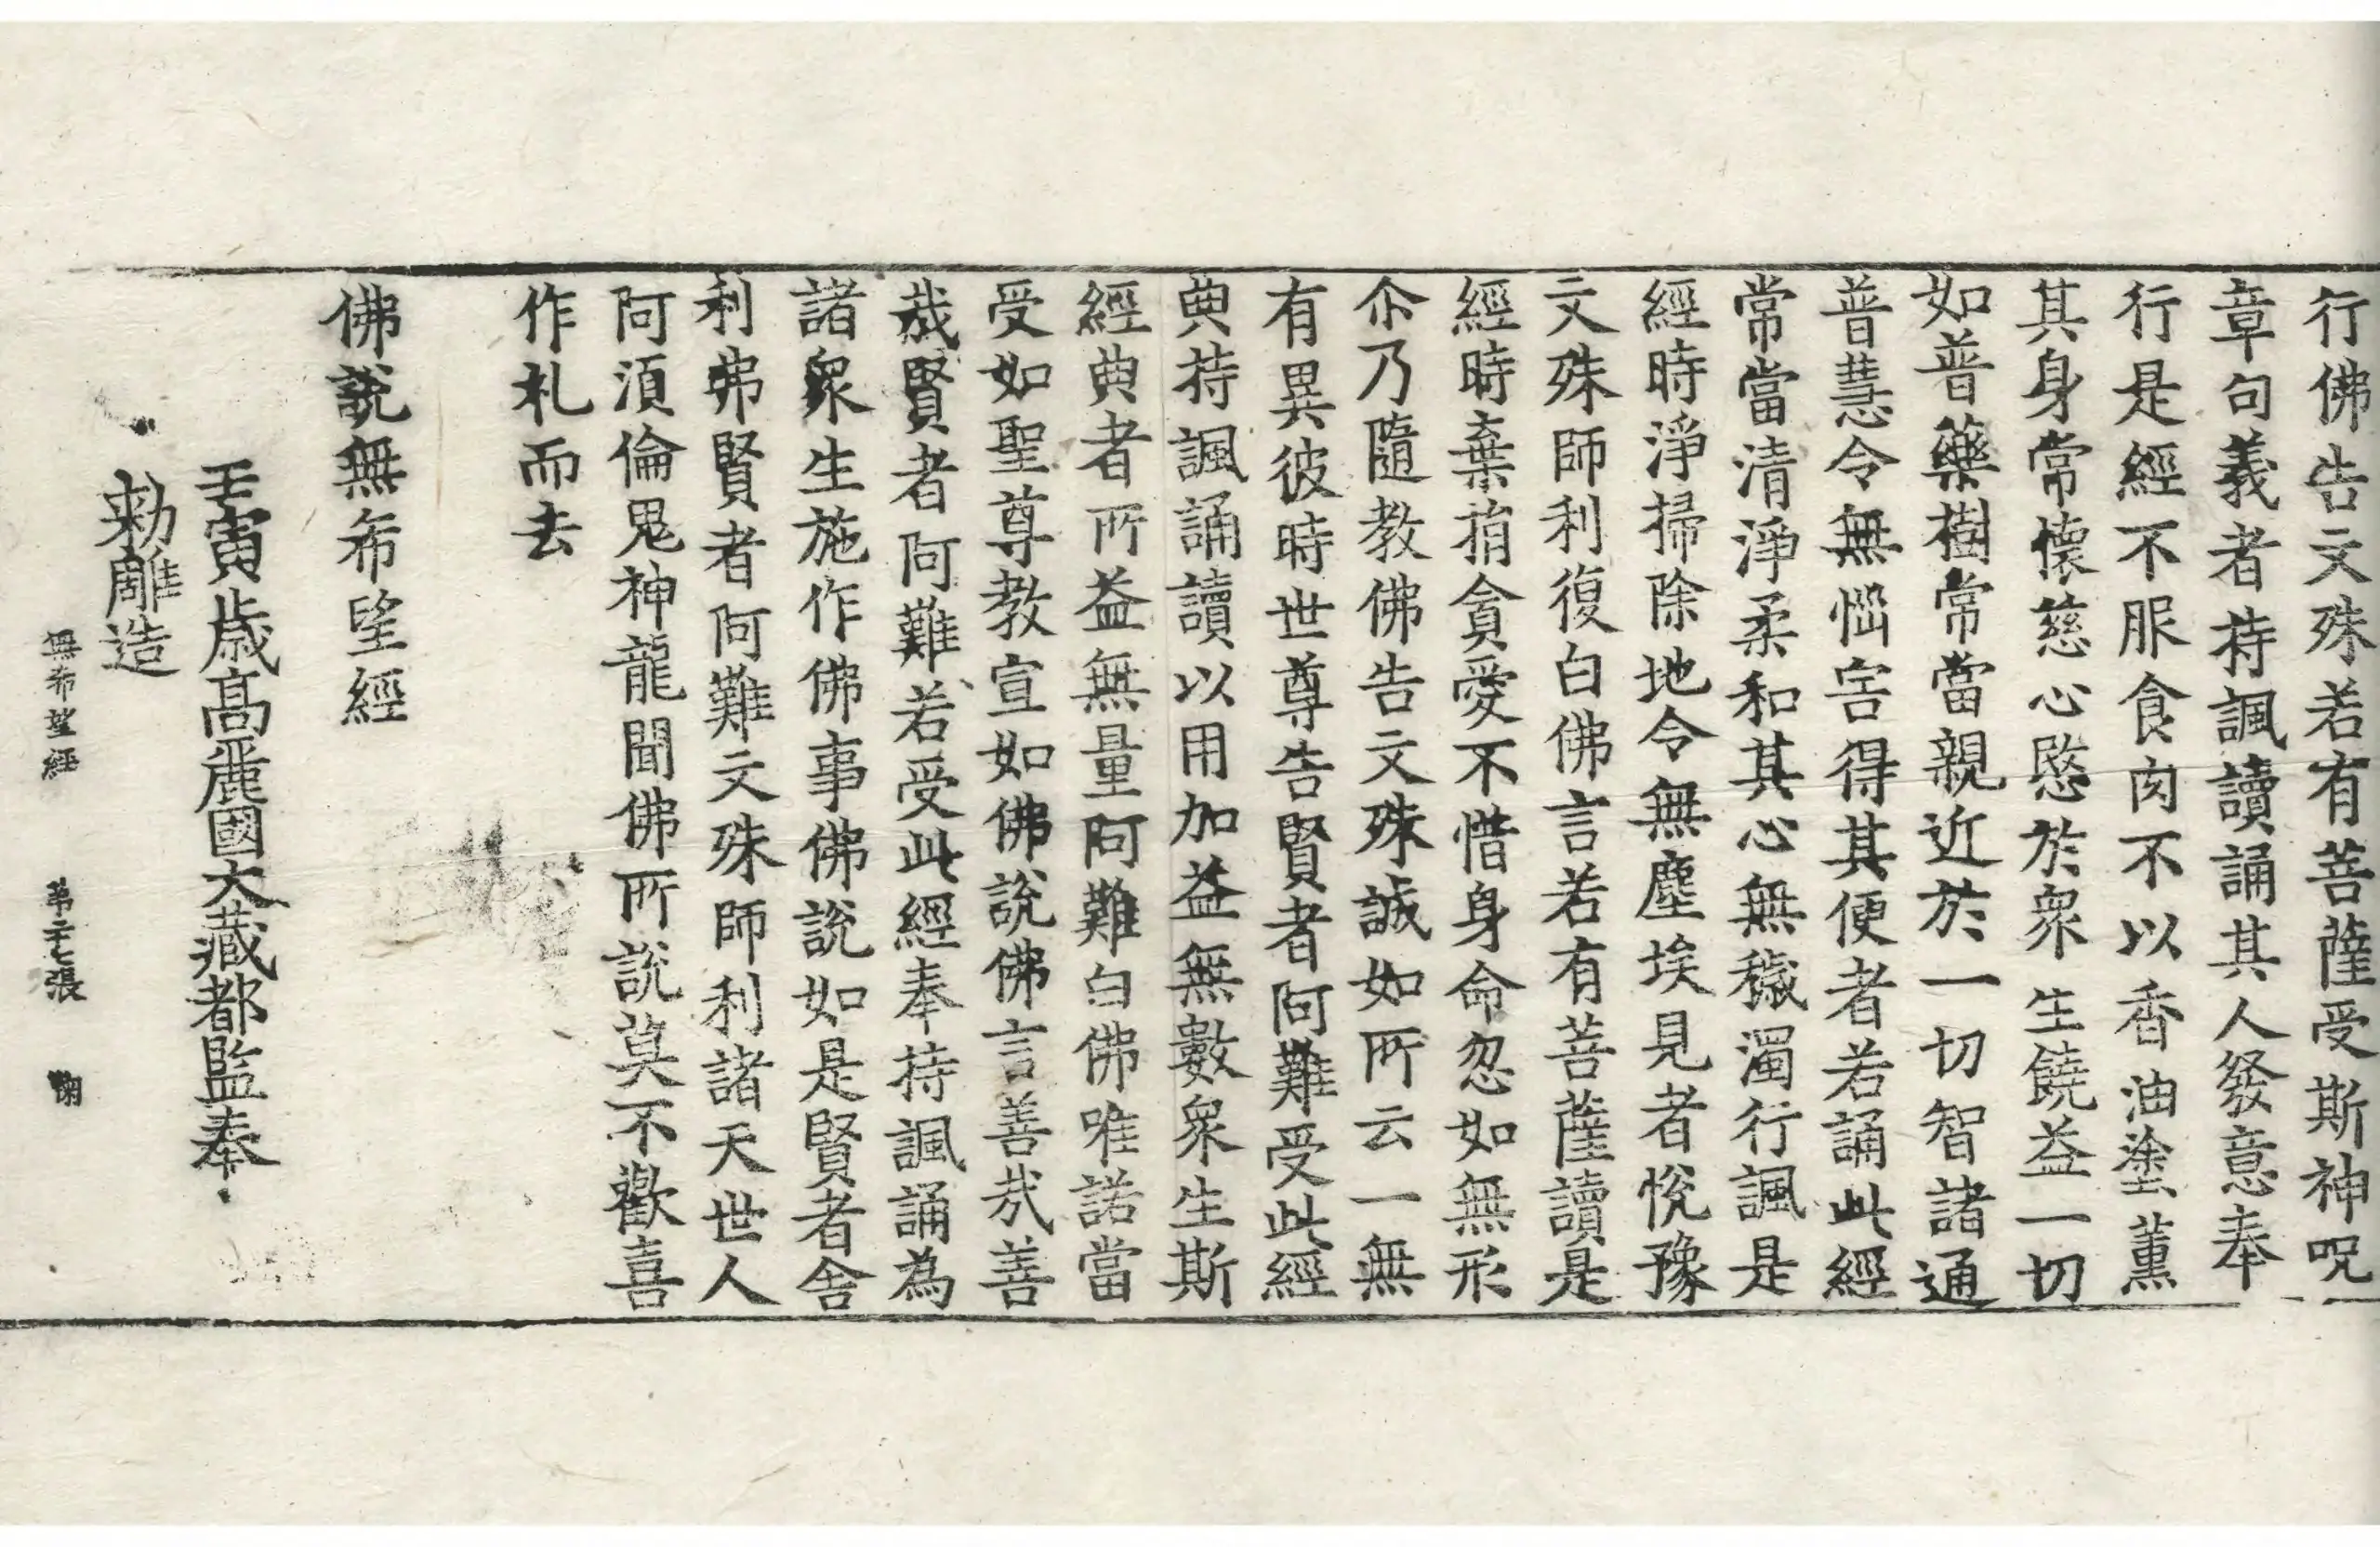 行佛告文殊若有菩薩受斯神呪
章句義者持諷讀誦其人發意奉
行是經不服食肉不以香油塗薰
其身常懷慈心愍於衆生饒益一切
如普藥樹常當親近於一切智諸通
普慧令無惱害得其便者若誦此經
常當清淨柔和其心無穢濁行諷是
經時淨掃除地令無塵埃見者悅豫
文殊師利復白佛言若有菩薩讀是
經時棄捐貪愛不惜身命忽如無形
尒乃隨教佛告文殊誠如所云一無
有異彼時世尊告賢者阿難受此經
典持諷誦讀以用加益無數衆生斯
經典者所益無量阿難白佛唯諾當
受如聖尊教宣如佛說佛言善哉善
哉賢者阿難若受此經奉持諷誦為
諸衆生施作佛事佛說如是賢者舍
利弗賢者阿難文殊師利諸天世人
阿須倫鬼神龍聞佛所說莫不歡喜
作札而去
佛說無希望經
壬寅歳高麗國大藏都監奉
勑雕造
無希望經 第二十七張 鞠